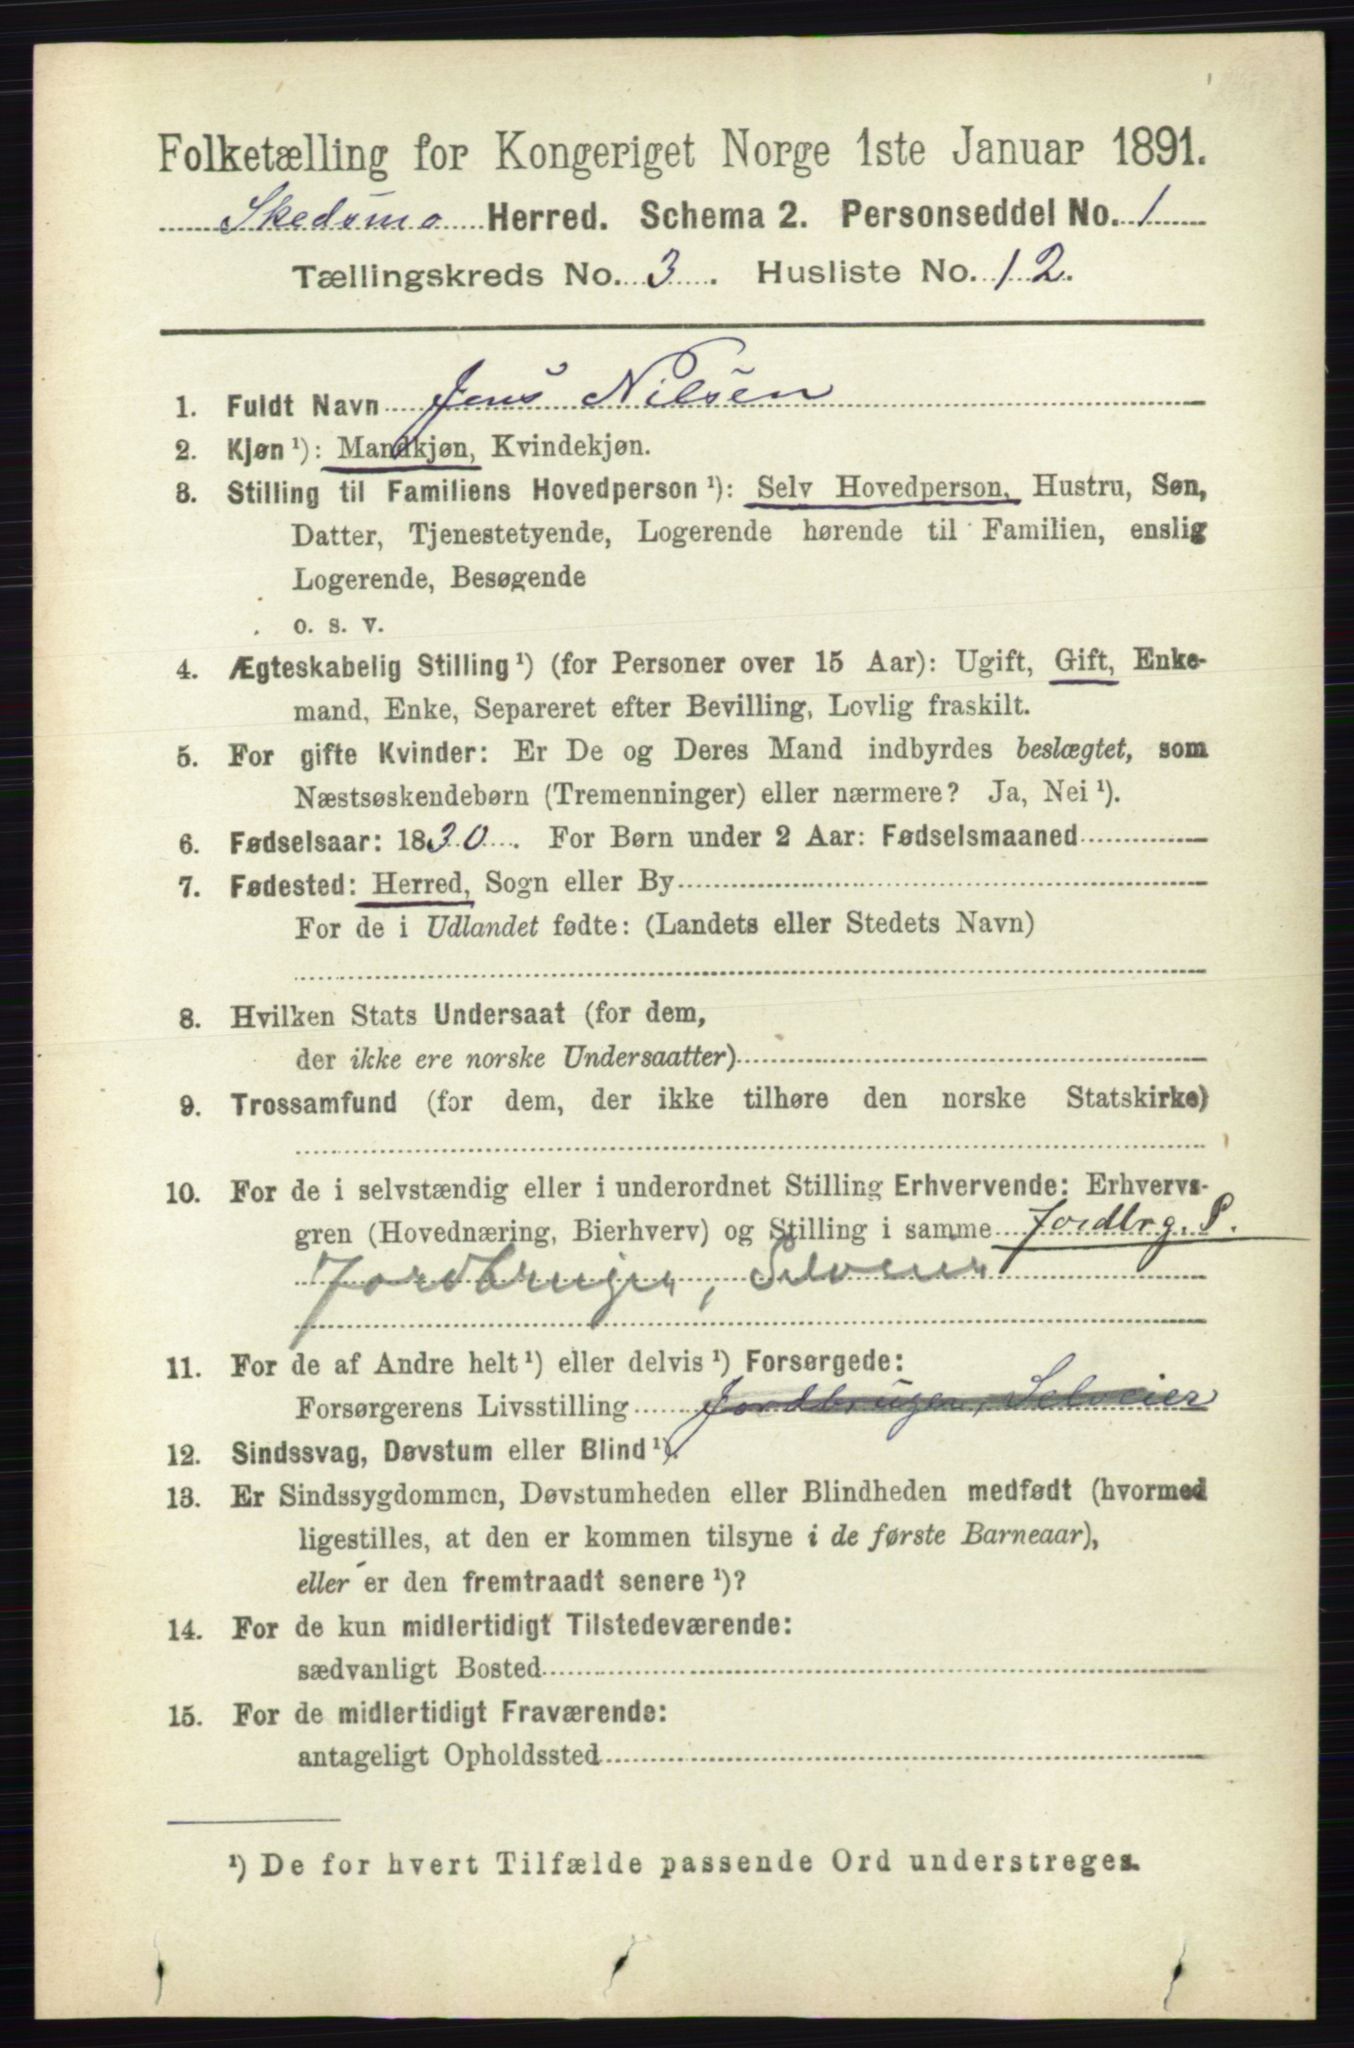 Folketælling for Kongeriget Norge 1ste Januar 1891.
Skedsmo Herred. Schema 2. Personseddel No. 1
Tællingskreds No. 3. Husliste No. 12.
1. Fuldt Navn Jens Nilsen
2. Kjøn ¹): Mandkjøn, Kvindekjøn.
3. Stilling til Familiens Hovedperson ¹): Selv Hovedperson, Hustru, Søn,
Datter, Tjenestetyende, Logerende hørende til Familien, enslig
Logerende, Besøgende
o. s. v.
4. Ægteskabelig Stilling ¹) (for Personer over 15 Aar): Ugift, Gift, Enke-
mand, Enke, Separeret efter Bevilling, Lovlig fraskilt.
5. For gifte Kvinder: Er De og Deres Mand indbyrdes beslægtet, som
Næstsøskendebørn (Tremenninger) eller nærmere? Ja, Nei ¹).
6. Fødselsaar: 1830. For Børn under 2 Aar: Fødselsmaaned
7. Fødested: Herred, Sogn eller By
For de i Udlandet fødte: (Landets eller Stedets Navn)
8. Hvilken Stats Undersaat (for dem,
der ikke ere norske Undersaatter)
9. Trossamfund (for dem, der ikke tilhøre den norske Statskirke)
10. For de i selvstændig eller i underordnet Stilling Erhvervende: Erhvervs-
gren (Hovednæring, Bierhverv) og Stilling i samme Jordbrg. S.
Jordbruger, Selveier
11. For de af Andre helt ¹) eller delvis ¹) Forsørgede:
Forsørgerens Livsstilling Jordbruger, Selveier
12. Sindssvag, Døvstum eller Blind ¹).
13. Er Sindssygdommen, Døvstumheden eller Blindheden medfødt (hvormed
ligestilles, at den er kommen tilsyne i de første Barneaar),
eller er den fremtraadt senere ¹)?
14. For de kun midlertidigt Tilstedeværende:
sædvanligt Bosted
15. For de midlertidigt Fraværende:
antageligt Opholdssted
¹) De for hvert Tilfælde passende Ord understreges.